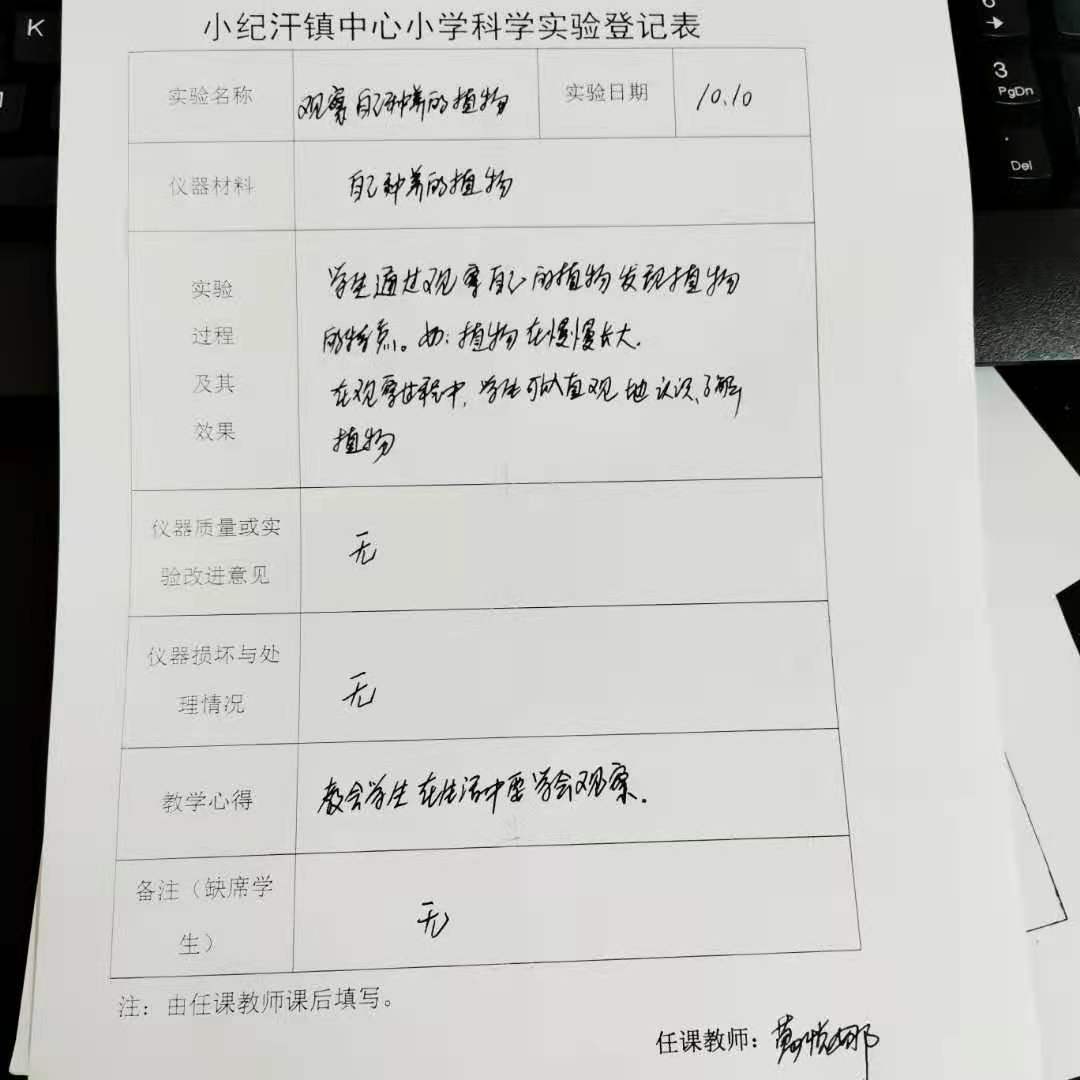 小纪汗镇中心小学科学实验登记表
实验名称 观察自己种养的植物 实验日期 10.10
仪器材料 自己种养的植物
实验
过程
及其
效果
学生通过观察自己的植物发现植物
的特点。如:植物在慢慢长大.
在观察过程中,学生可以直观地认识、了解
植物
仪器质量或实
验改进意见
无
仪器损坏与处
理情况
无
教学心得 教会学生在生活中要学会观察.
备注(缺席学
生)
无
注:由任课教师课后填写。
任课教师:
K
6
→
3
PgDn
.
Del